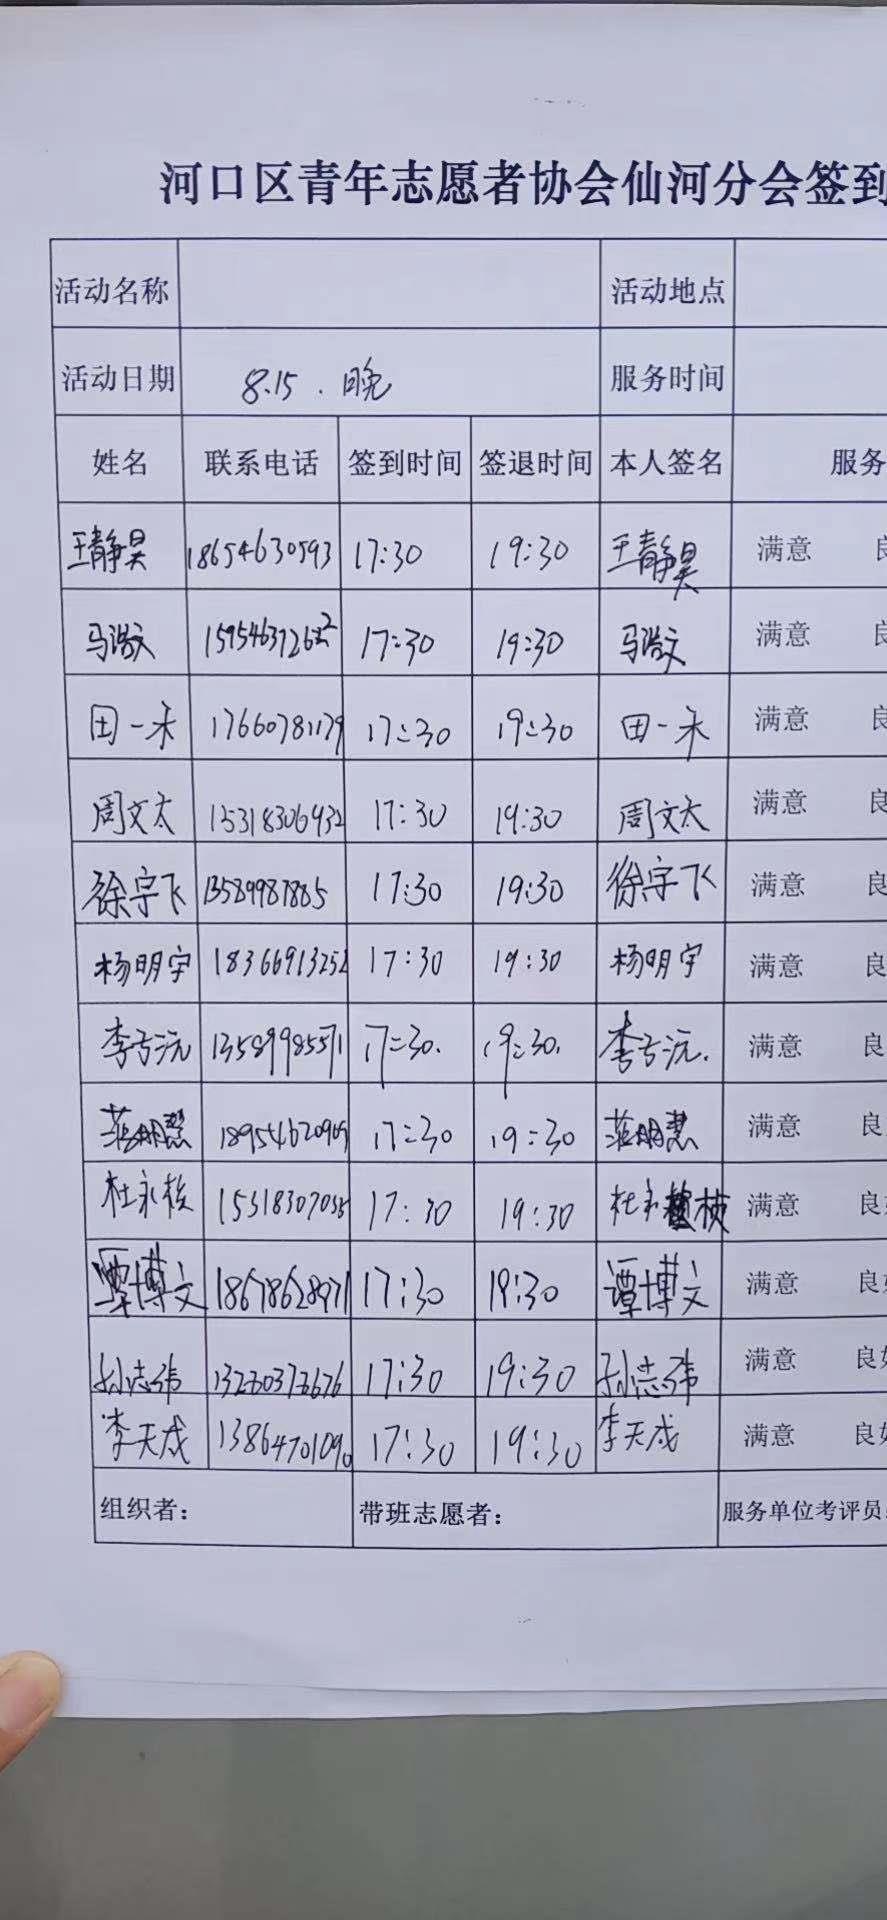 河口区青年志愿者协会仙河分会签到
活动名称 活动地点
活动日期 8.15.晚 服务时间
姓名 联系电话 签到时间 签退时间 本人签名 服务
王静昊 18654630593 17:30 19:30 王静昊 满意
马浩文 17:30 19:30 马浩文 满意
田一禾 17660781179 17:30 19:30 田一禾 满意
周文太 15318306932 17:30 19:30 周文太 满意 良
徐宇飞 13589987885 17:30 19:30 徐宇飞 满意 良
杨明宇 18366913252 17:30 19:30 杨明宇 满意 良
李 13589985571 17:30. 19:30. 李 满意 良
范明慧 18954620909 17:30 19:30 范明慧 满意 良
杜永 17:30 19:30 杜永 满意 良
覃博文 18678628971 17:30 19:30 谭博文 满意 良
孙志伟 17:30 19:30 孙志伟 满意 良好
李天成 13864701090 17:30 19:30 李天成 满意 良好
组织者： 带班志愿者： 服务单位考评员：